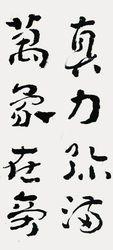 真力弥満
萬象在旁